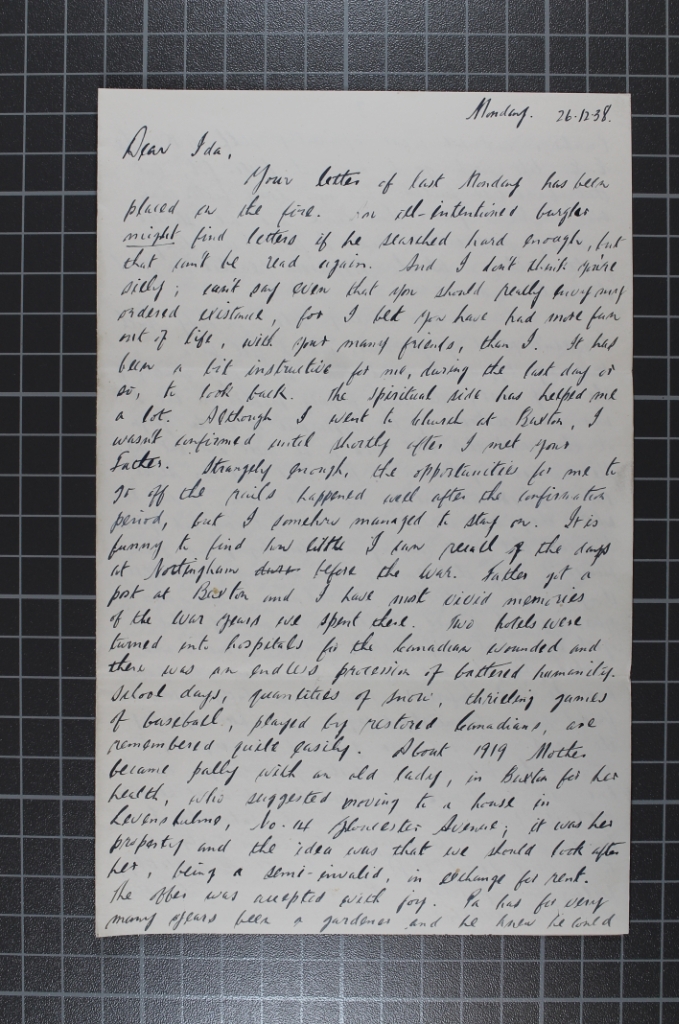 Monday. 26-12-38.
Dear Ida,
Your letter of last Monday has been
placed on the fire. An ill-intentioned burglar
might find letters if he searched hard enough, but
that can't be read again. And I don't think you're
silly; can't say even that you should really envy my
ordered existence, for I bet you have had more fun
out of life, with your many friends, than I. It has
been a bit instructive for me, during the last day or
so, to look back. The spiritual side has helped me
a lot. Although I went to Church at Buxton, I
wasn't confirmed until shortly after I met your
Father. Strangely enough, the opportunities for me to
go off the rails happened well after the confirmation
period, but I somehow managed to stay on. It is
funny to find how little I can recall of the days
at Nottingham before the War. Father got a
post at Buxton and I have most vivid memories
of the War years we spent there. Two hotels were
turned into hospitals for the Canadian wounded and
there was an endless procession of battered humanity.
School days, quantities of snow, thrilling games
of baseball, played by restored Canadians, are
remembered quite easily. About 1919 Mother
became pally with an old lady, in Buxton for her
health, who suggested moving to a house in
Levenshulme, No. 14 Gloucester Avenue; it was her
property and the idea was that we should look after
her, being a semi-invalid, in exchange for rent.
The offer was accepted with joy. Pa has for very
many years been a gardener and he knew he could